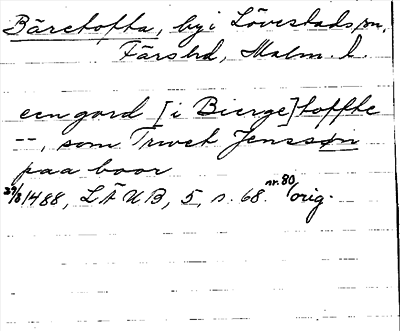 Bäretofta, by i Lövestads sn,
Färs hd, Malm. l.
een gord [i Bierge]toffte
--, som Truet Jenssøn
paa boor
29/8 1488, LÄUB, 5, s. 68. nr. 80, orig.